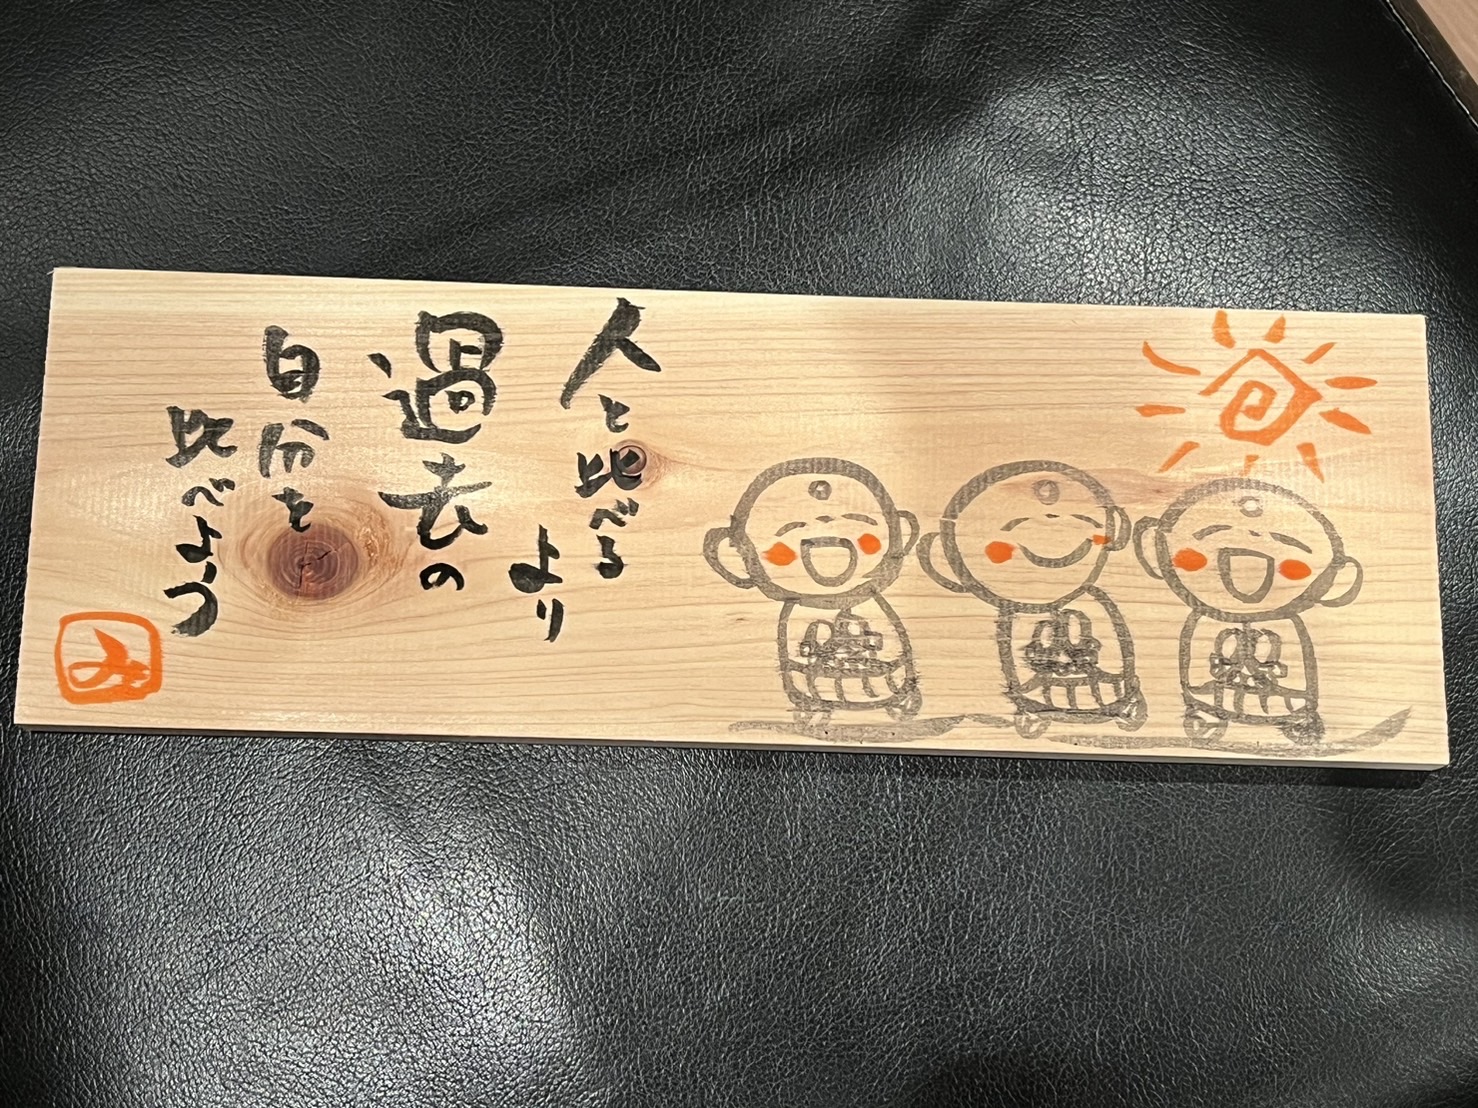 人と比べる
より
過去の
自分を
比べよう
み